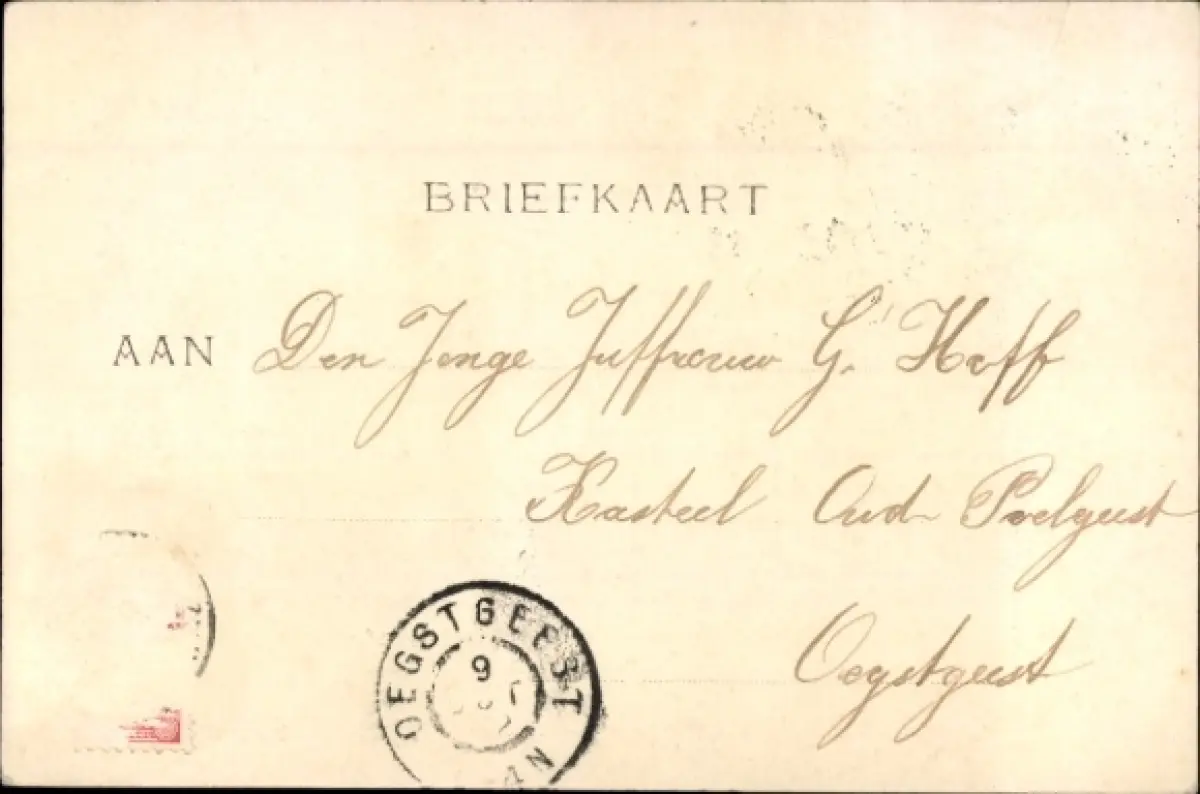 BRIEFKAART
AAN Den Jonge Juffrouw G. Hoff
Kasteel Oud Poelgeest
Oegstgeest
OEGSTGEEST
9